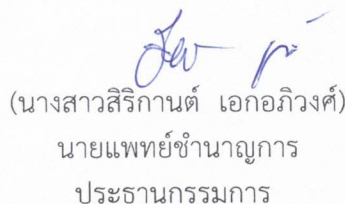 (นางสาวสิริกานต์ เอกอภิวงศ์)
นายแพทย์ชำนาญการ
ประธานกรรมการ